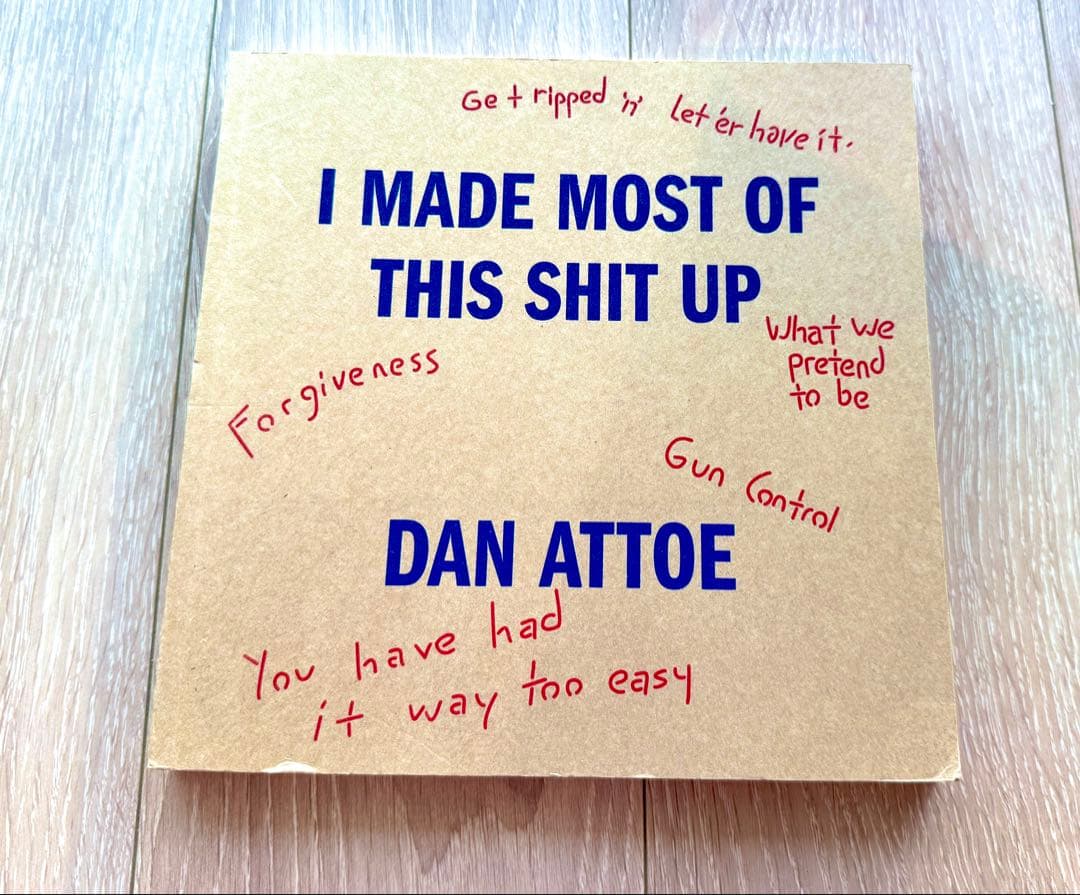 Get ripped 'n' let 'er have it.
I MADE MOST OF
THIS SHIT UP
What we
pretend
to be
Forgiveness
Gun Control
DAN ATTOE
You have had
it way too easy